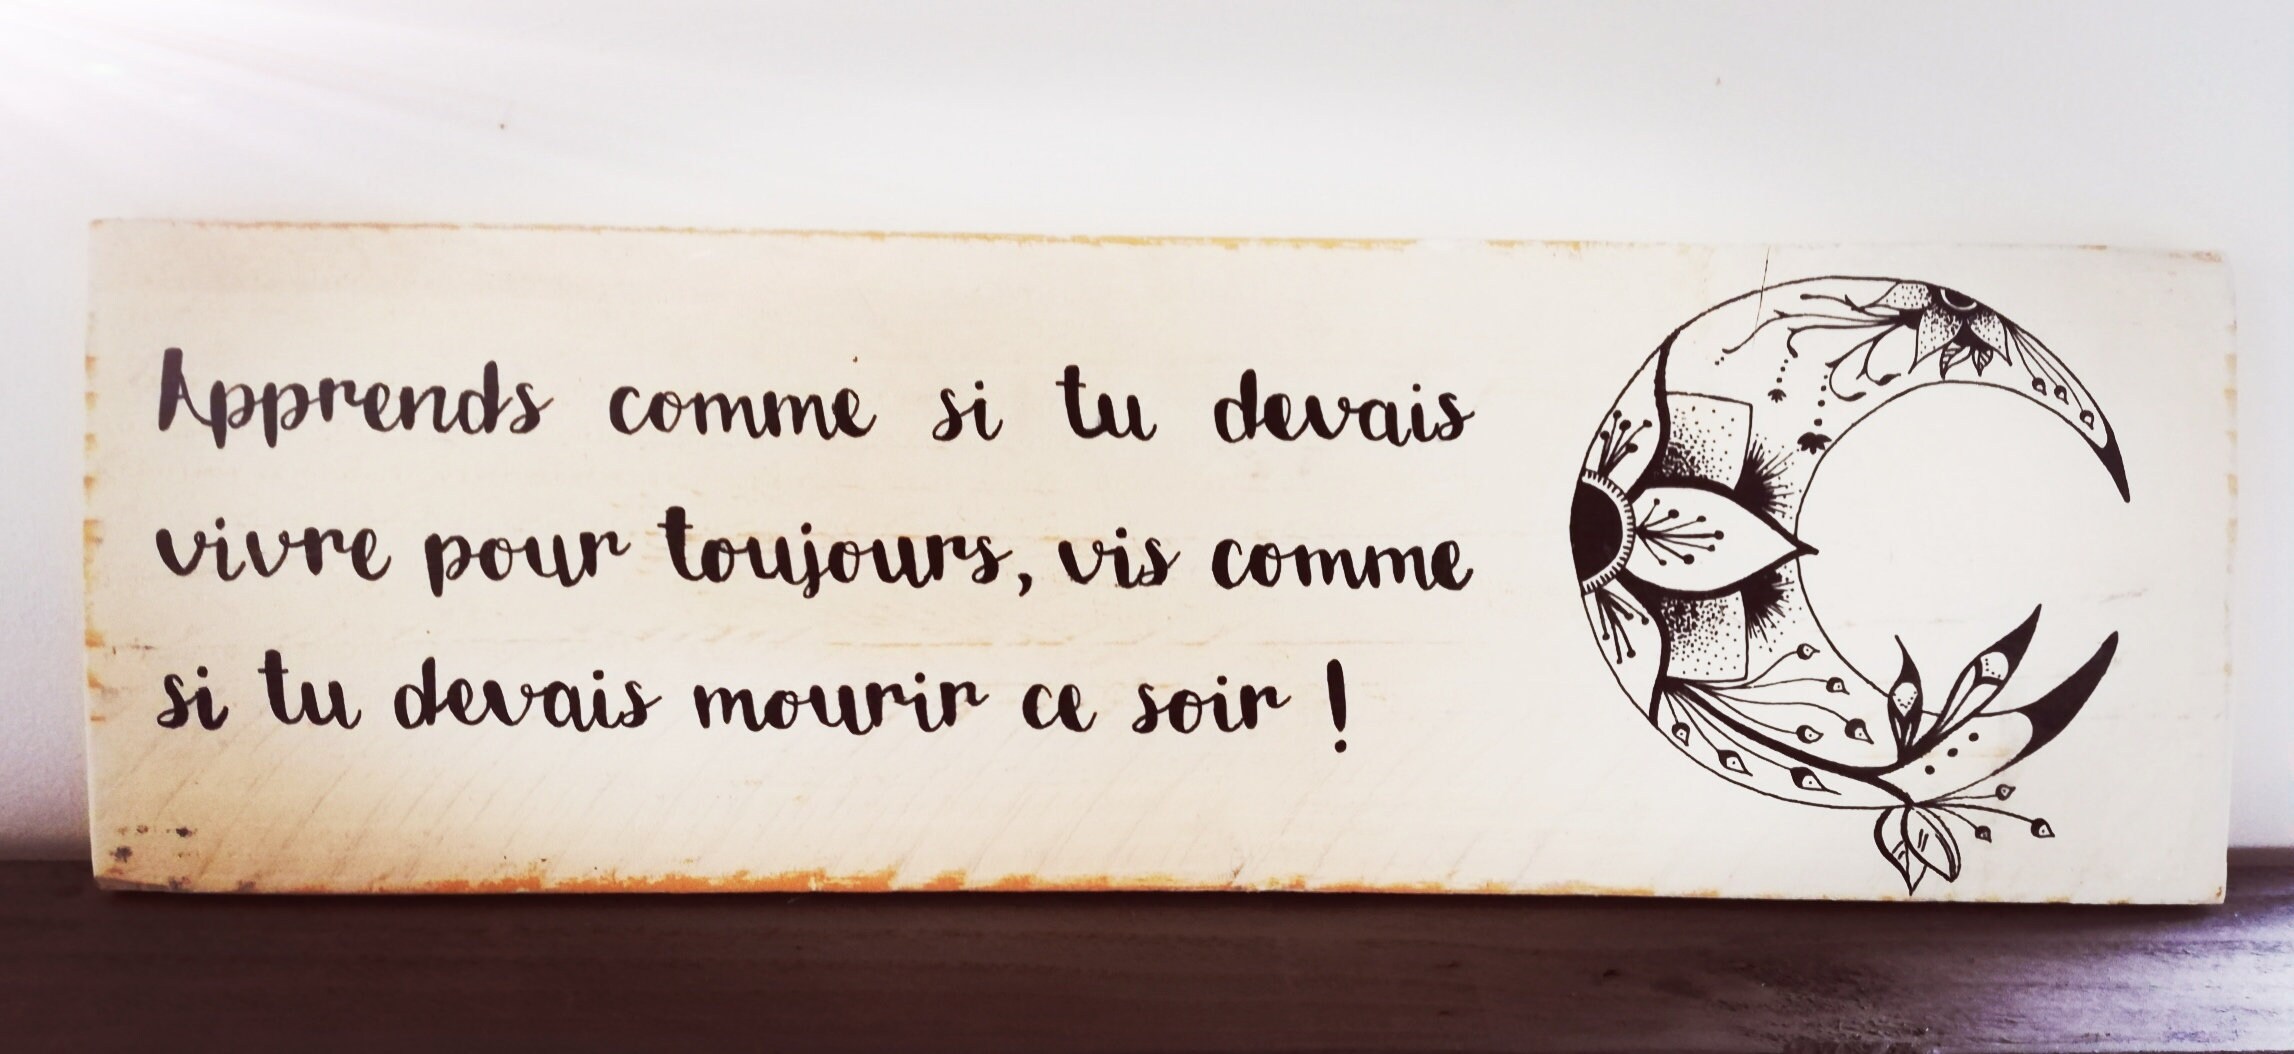 Apprends comme si tu devais
vivre pour toujours, vis comme
si tu devais mourir ce soir !